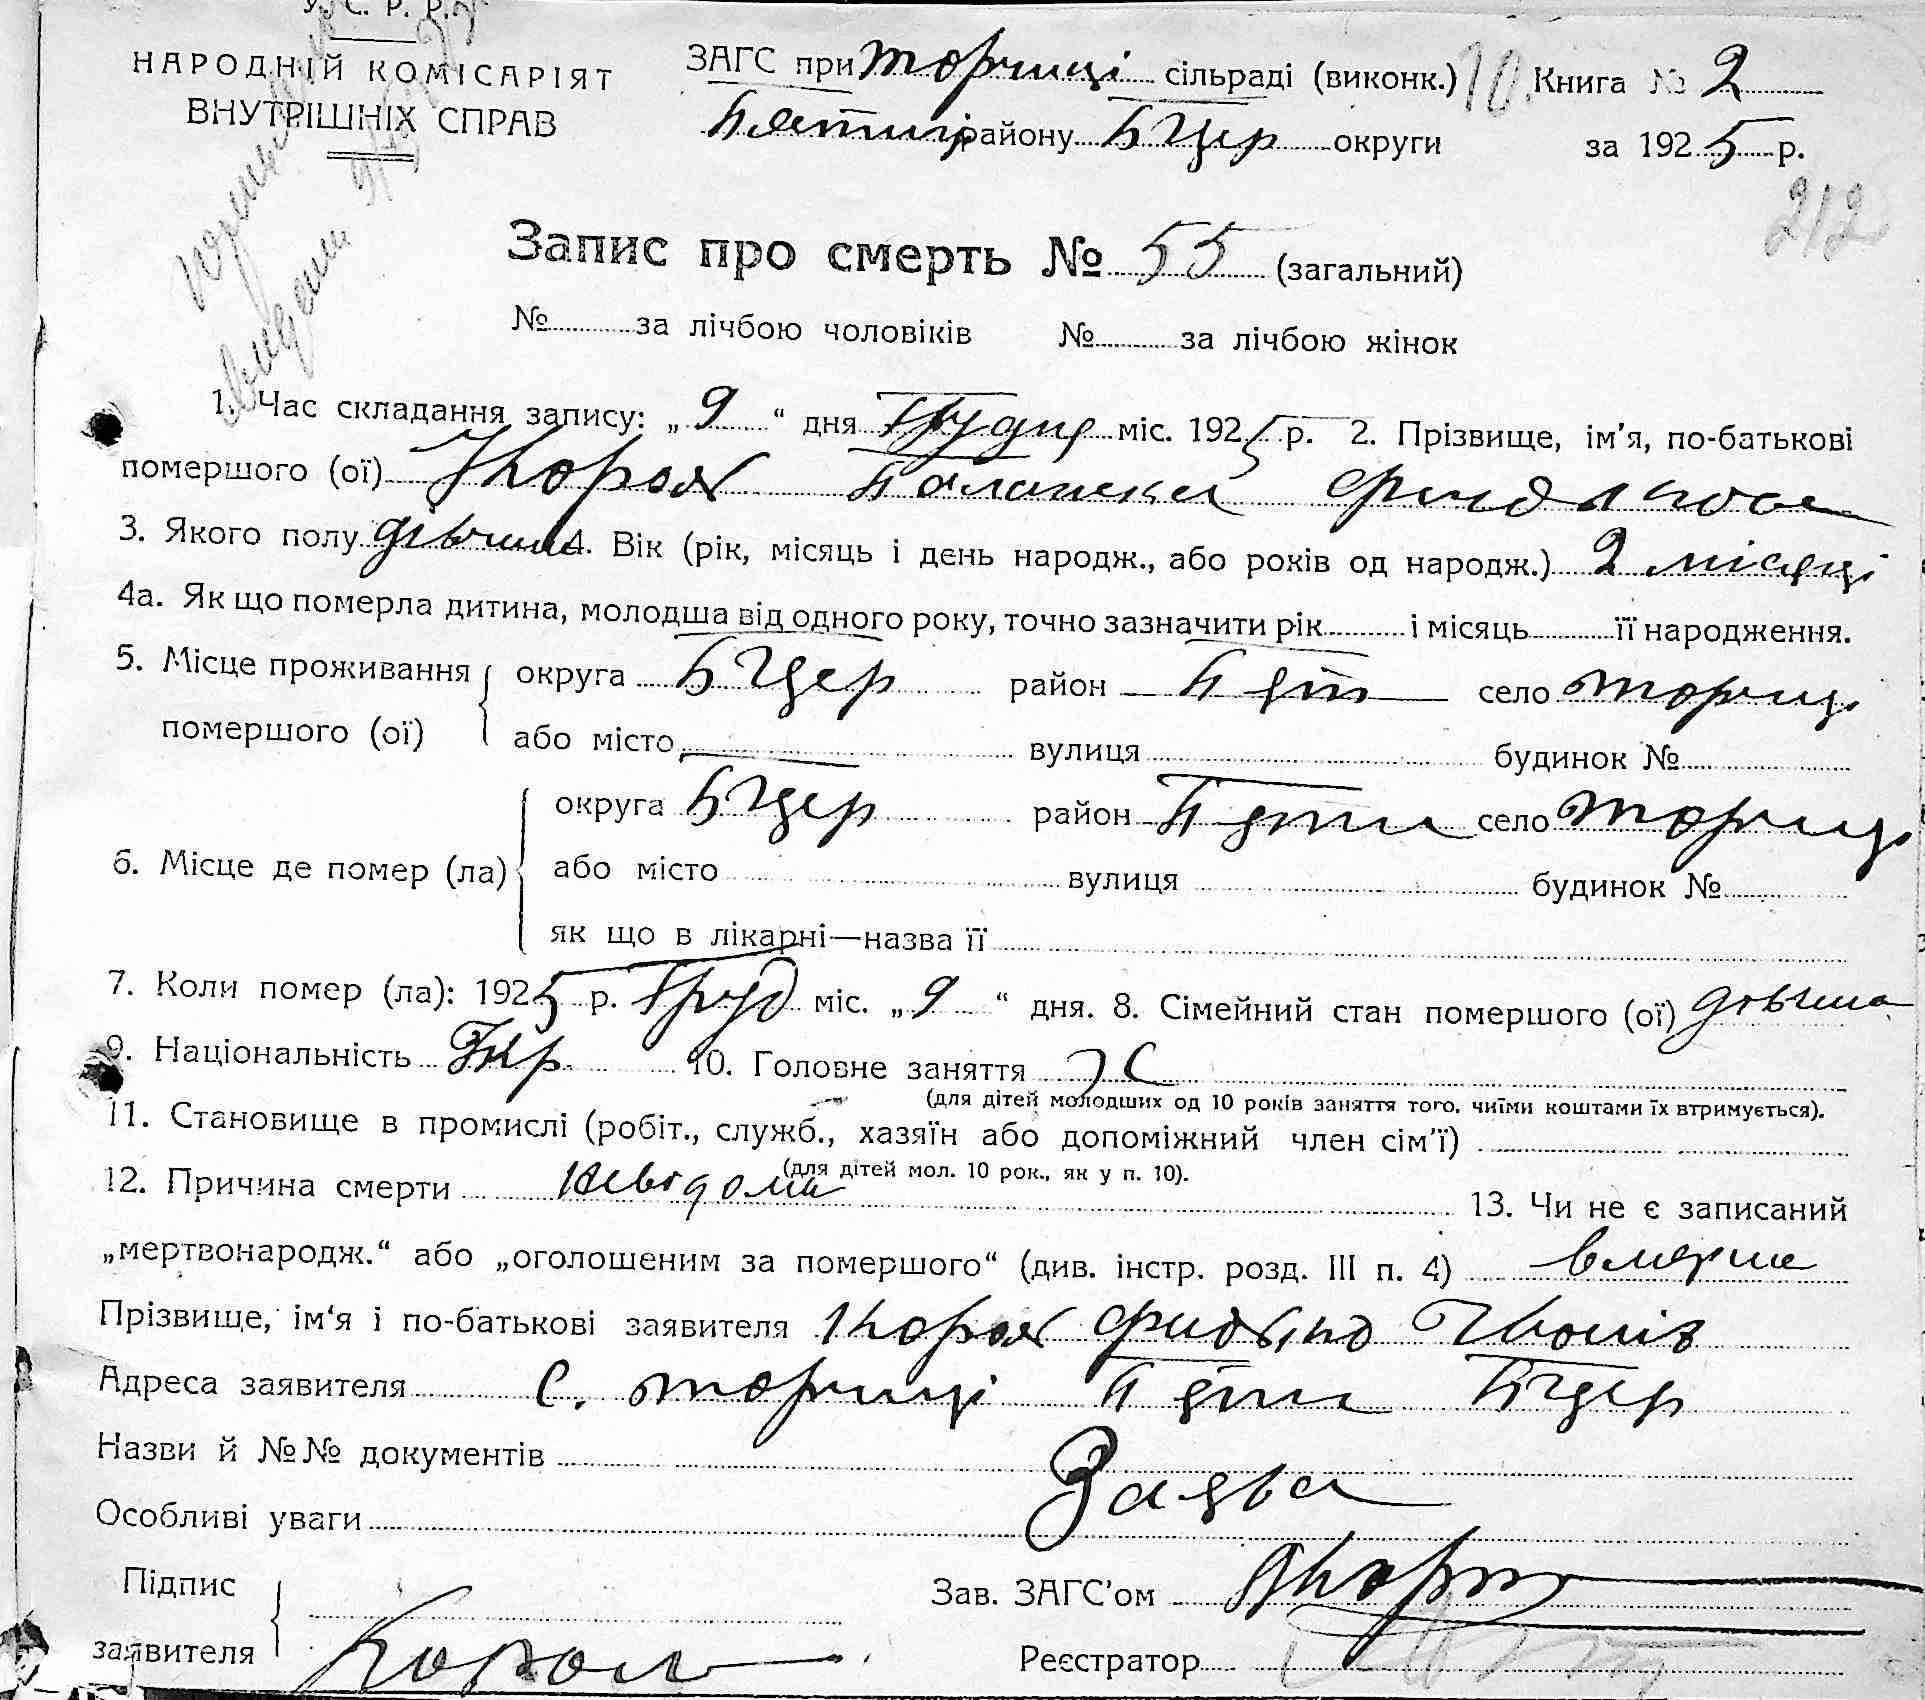 У. С. Р. Р.
НАРОДНІЙ КОМІСАРІЯТ
ВНУТРІШНІХ СПРАВ
ЗАГС при Торчиці сільраді (виконк.) 10. Книга № 2
Пятигір району БЦер округи за 1925 р.
212
Запис про смерть № 55 (загальний)
№ за лічбою чоловіків № за лічбою жінок
1. Час складання запису: „9“ дня Грудня міс. 1925 р. 2. Прізвище, ім'я, по-батькові
помершого (ої) Король Палажка
3. Якого полу дівчина 4. Вік (рік, місяць і день народж., або років од народж.) 2 місяці
4а. Як що померла дитина, молодша від одного року, точно зазначити рік і місяць її народження.
5. Місце проживання помершого (ої) округа БЦер район Пят село Торчиці
або місто вулиця будинок №
6. Місце де помер (ла) округа БЦер район Пяти село Торчиці
або місто вулиця будинок №
як що в лікарні—назва її
7. Коли помер (ла): 1925 р. Груд міс. „9“ дня. 8. Сімейний стан помершого (ої) дівчина
9. Національність Укр. 10. Головне заняття
(для дітей молодших од 10 років заняття того, чиїми коштами їх втримується).
11. Становище в промислі (робіт., служб., хазяїн або допоміжний член сім'ї)
(для дітей мол. 10 рок., як у п. 10).
12. Причина смерти невідома 13. Чи не є записаний
„мертвонародж.“ або „оголошеним за помершого“ (див. інстр. розд. III п. 4) вмерше
Прізвище, ім'я і по-батькові заявителя Король
Адреса заявителя с. Торчиці Пяти БЦер
Назви й №№ документів Заява
Особливі уваги
Підпис заявителя Король
Зав. ЗАГС'ом
Реєстратор